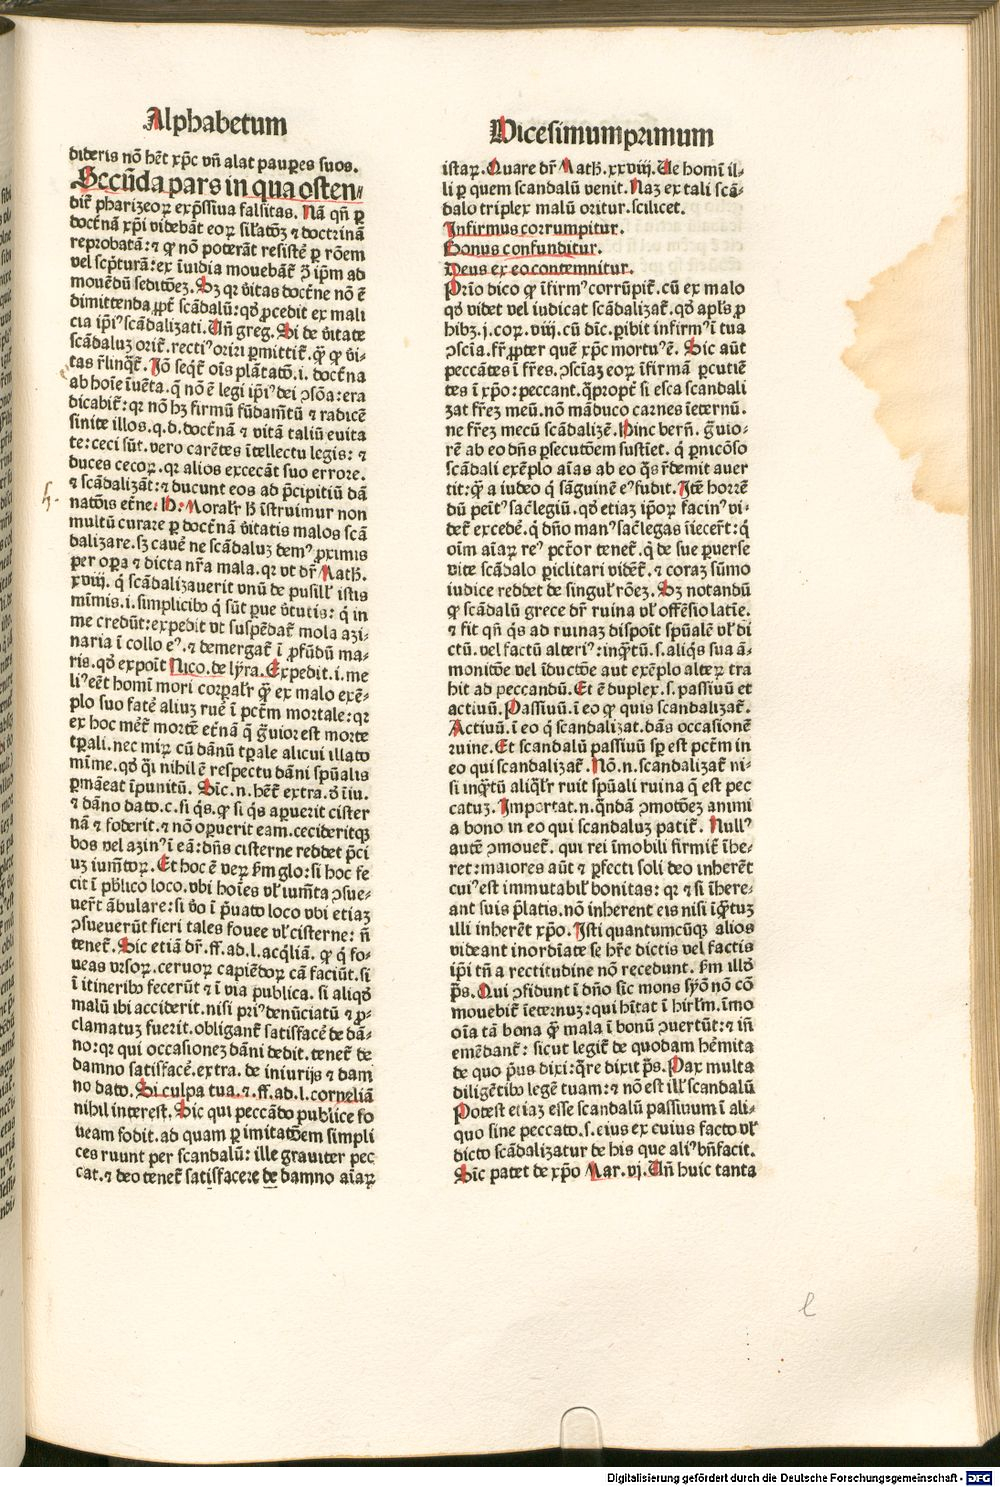 Alphabetum
Vicesimumprimum
dideris nō hēt xp̄c vn̄ alat paupes suos.
Secūda pars in qua osten⸗
dit᷑ pharizeoꝝ exp̄ssiua falsitas. Nā qn̄ ꝑ
doct̄nā xp̄i videbāt eoꝝ sil'atōꝫ ⁊ doctrinā
reprobatā: ⁊ ꝙ nō poterāt resistē ꝑ rōem
vel sc̄pturā: ex īuidia mouebāt᷑ ↄ̄ ip̄m ad
mouēdū seditōeꝫ. Sꝫ qꝛ v̄itas doct̄ne nō ē
dimittenda ꝓpt᷑ scādalū: qđ ꝓcedit ex mali
cia ip̄iꝰ scādalizati. Vn̄ greg. Si de v̄itate
scādaluꝫ orit᷑. rectiꝰ oriri ꝑmittit᷑. q̄ꝫ ꝙ v̄i⸗
tas r̄linq̄t᷑. Iō seq̄t᷑ oīs plātatō. i. doct̄na
ab hoīe īuēta. q̄ nō ē legi ip̄iꝰ dei ↄsōa: era
dicabit᷑: qꝛ nō hꝫ firmū fūdamtū ⁊ radicē
sinite illos. q. d. doct̄nā ⁊ vitā taliū euita
te: ceci sūt. vero carētes ītellectu legis: ⁊
duces cecoꝝ. qꝛ alios excecāt suo errore.
⁊ scādalizāt: ⁊ ducunt eos ad p̄cipitiū dā
natōis et̄ne. H. Moralr̄ h̄ īstruimur non
multū curare ꝑ doct̄nā v̄itatis malos scā
dalizare. sꝫ cauē ne scādaluꝫ demꝰ ꝓximis
per opa ⁊ dicta nr̄a mala. qꝛ vt dr̄ Math.
xviij. q̄ scādalizauerit vnū de pusill' istis
mīmis. i. simplicibꝰ q̄ sūt ꝑue v̄tutis: q̄ in
me credūt: expedit vt suspēdat᷑ mola azi⸗
naria ī collo eꝰ. ⁊ demergat᷑ ī ꝓfūdū ma⸗
ris. qđ expoīt Nico. de lyra. Expedit. i. me
liꝰ eēt homī mori corpalr̄ q̄ꝫ ex malo exē⸗
plo suo fatē aliuꝫ ruē ī pct̄m mortale: qꝛ
ex hoc met᷑ mortē et̄nā q̄ ḡuior est morte
tp̄ali. nec miꝝ cū dānū tp̄ale alicui illato
mīme. qđ q̄i nihil ē respectu dāni spūalis
ꝑmāeat īpunitū. Sic. n. hēt᷑ extra. đ īiu.
⁊ dāno dato. c. si q̄s. ꝙ si q̄s aperuerit cister
nā ⁊ foderit. ⁊ nō opuerit eam. cecideritqꝫ
bos vel azinꝰ ī eā: dn̄s cisterne reddet p̄ci
uꝫ iumtoꝝ. Et hoc ē veꝝ fm glo: si hoc fe
cit ī pb̄lico loco. vbi hoīes vl' iumta ↄsue⸗
uert᷑ ābulare: si v̄o ī p̄uato loco vbi etiaꝫ
ↄsueuerūt fieri tales fouee vl' cisterne: n̄
tenet᷑. Sic etiā dr̄. ff. ad. l. acq̄liā. ꝙ q̄ fo⸗
ueas vrsoꝝ. ceruoꝝ capiēdoꝝ cā faciūt. si
ī itineribꝰ fecerūt ⁊ ī via publica. si aliqđ
malū ibi acciderit. nisi priꝰ denūciatū ⁊ ꝓ⸗
clamatuꝫ fuerit. obligant᷑ satisfacē de dā⸗
no: qꝛ qui occasioneꝫ dāni dedit. tenet᷑ de
damno satisfacē. extra. de iniurijs ⁊ dam
no dato. Si culpa tua. ⁊. ff. ad. l. corneliā
nihil interest. Sic qui peccādo publice fo
ueam fodit. ad quam ꝑ imitatōem simpli
ces ruunt per scandalū: ille grauiter pec
cat. ⁊ deo tenet᷑ satisfacere de damno aīaꝝ
istaꝝ. Quare dr̄ Math. xxviij. Ue homī il⸗
li ꝑ quem scandalū venit. Naꝫ ex tali scā⸗
dalo triplex malū oritur. scilicet.
Infirmus corrumpitur.
Bonus confunditur.
Deus ex eo contemnitur.
Prīo dico ꝙ īfirmꝰ corrūpit᷑. cū ex malo
qđ videt vel iudicat scādalizat᷑. qđ apl's ꝓ
hibꝫ. j. coꝝ. viij. cū dic̄. ꝑibit infirmꝰ ī tua
ↄscīa. fr̄. ꝓpter quē xp̄c mortuꝰ ē. Sic aūt
peccātes ī fr̄es. ↄscīaꝫ eoꝝ īfirmā ꝑcutiē
tes ī xp̄o: peccant. q̄propt᷑ si esca scandali
zat fr̄eꝫ meū. nō māduco carnes īeternū.
ne fr̄eꝫ mecū scādalizē. Hinc bern̄. ḡuio⸗
rē ab eo dn̄s ꝑsecutōem sustīet. q̄ ꝑnicōso
scādali exēplo aīas ab eo q̄s r̄demit auer
tit: q̄ꝫ a iudeo q̄ sāguinē eꝰ fudit. Itē horrē
dū peītꝰ sac̄legiū. qđ etiaꝫ ip̄oꝝ facinꝰ vi⸗
det᷑ excedē. q̄ dn̄o manꝰ sac̄legas īiecert᷑: q̄
oīm aīaꝝ reꝰ pct̄or tenet᷑. q̄ de sue ꝑuerse
vite scādalo ꝑiclitari vidēt᷑. ⁊ coraꝫ sūmo
iudice reddet de singul' rōeꝫ. Sꝫ notandū
ꝙ scādalū grece dr̄ ruina vl' offēsio latīe.
⁊ fit qn̄ q̄s ad ruinaꝫ dispoīt spūalē vl' di
ctū. vel factū alteriꝰ: inq̄tū. s. aliq̄s sua ā⸗
monitōe vel īductōe aut exēplo alteꝝ tra
hit ad peccandū. Et ē duplex. s. passiuū et
actiuū. Passiuū. ī eo ꝙ quis scandalizat᷑.
Actiuū. ī eo q̄ scandalizat. dās occasionē
ruine. Et scandalū passiuū sꝑ est pct̄m in
eo qui scandalizat᷑. Nō. n. scandalizat᷑ ni⸗
si inq̄tū aliq̄lr̄ ruit spūali ruina q̄ est pec
catuꝫ. Importat. n. q̄ndā ↄmotōeꝫ animi
a bono in eo qui scandaluꝫ patit᷑. Nullꝰ
autē ↄmouet᷑. qui rei īmobili firmit᷑ īhe⸗
ret: maiores aūt ⁊ ꝑfecti soli deo inherēt
cuiꝰ est immutabil' bonitas: qꝛ ⁊ si īhere⸗
ant suis p̄latis. nō inherent eis nisi īq̄tuꝫ
illi inherēt xp̄o. Isti quantumcūqꝫ alios
videant inordīate se hr̄e dictis vel factis
ip̄i tn̄ a rectitudine nō recedunt. fm illđ
p̄s. Qui ↄfidunt ī dn̄o sic̄ mons syō nō cō
mouebit᷑ īeternuꝫ: qui hītat ī hirl'm. īmo
oīa tā bona q̄ꝫ mala ī bonū ↄuertūt: ⁊ in̄
emēdant᷑: sicut legit᷑ de quodam hēmita
de quo p̄us dixi: q̄re dixit p̄s. Pax multa
diligētibꝰ legē tuam: ⁊ nō est ill' scandalū
Potest etiaꝫ esse scandalū passiuum ī ali⸗
quo sine peccato. s. eius ex cuius facto vl'
dicto scādalizatur de his que aliꝰ bn̄facit.
Sic patet de xp̄o Mar. vj. Vn̄ huic tanta
Digitalisierung gefördert durch die Deutsche Forschungsgemeinschaft - DFG